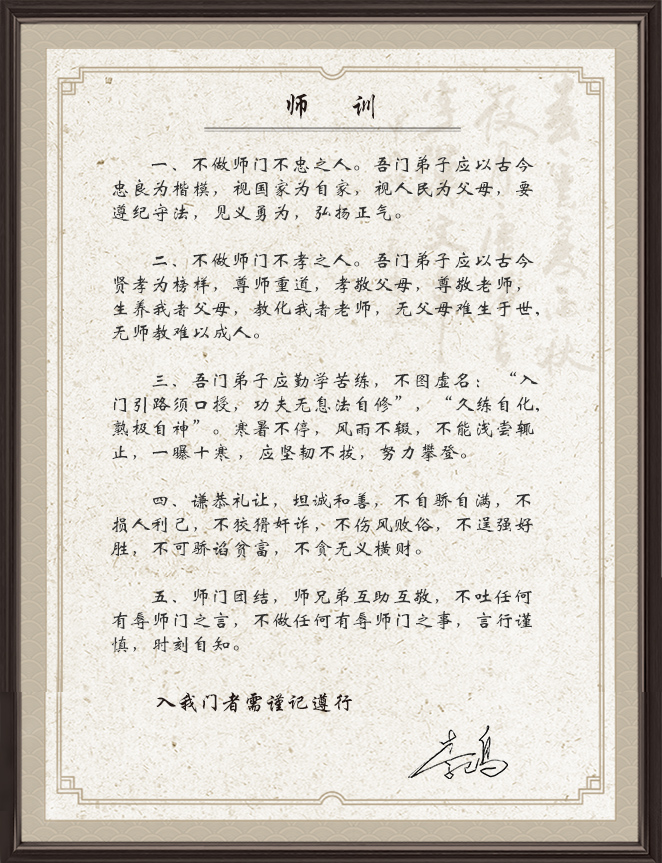 师 训
一、不做师门不忠之人。吾门弟子应以古今
忠良为楷模，视国家为自家，视人民为父母，要
遵纪守法，见义勇为，弘扬正气。
二、不做师门不孝之人。吾门弟子应以古今
贤孝为榜样，尊师重道，孝敬父母，尊敬老师，
生养我者父母，教化我者老师，无父母难生于世，
无师教难以成人。
三、吾门弟子应勤学苦练，不图虚名：“入
门引路须口授，功夫无息法自修”，“久练自化，
熟极自神”。寒暑不停，风雨不辍，不能浅尝辄
止，一曝十寒，应坚韧不拔，努力攀登。
四、谦恭礼让，坦诚和善，不自骄自满，不
损人利己，不狡猾奸诈，不伤风败俗，不逞强好
胜，不可骄谄贫富，不贪无义横财。
五、师门团结，师兄弟互助互敬，不吐任何
有辱师门之言，不做任何有辱师门之事，言行谨
慎，时刻自知。
入我门者需谨记遵行